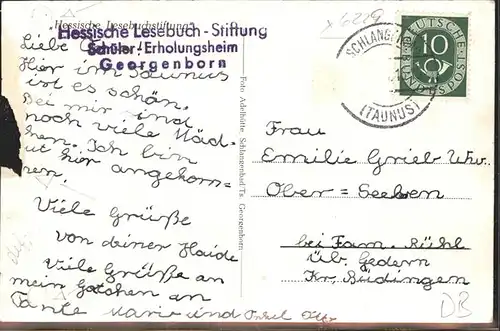 "Hessische Lesebuchstiftung"
Hessische Lesebuch - Stiftung
Schüler-Erholungsheim
Georgenborn
Liebe
Hier im Taunus
ist es schön.
Bei mir sind
noch viele Mäd-
chen. Ich bin
gut hier angekom=
men.
Viele Grüße
von deiner Heide
Viele Grüße an
mein Gotchen, an
Tante Marie und Onkel
Foto Adelhütte, Schlangenbad Ts. Georgenborn
x 6229
SCHLANGENBAD
(TAUNUS)
DEUTSCHE
BUNDESPOST
10
Frau
Emilie Grieb Ww.
Ober=Seeben
bei Fam. Rühl
üb. Gedern
Kr. Büdingen
DB